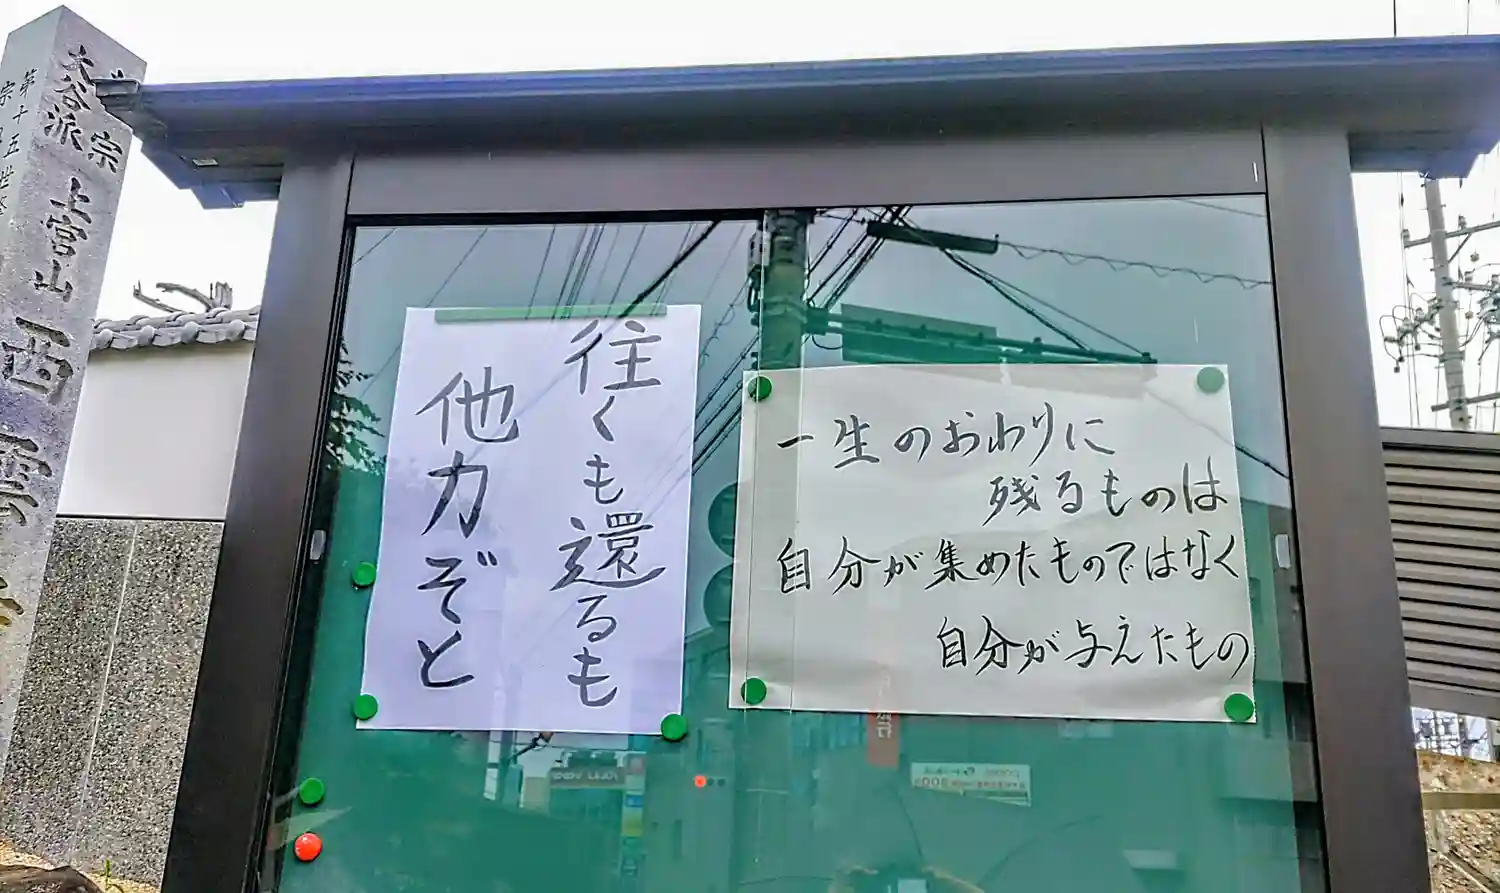 大谷派
宗
上宮山
西雲
第十五世
宗
往くも還るも
他力ぞと
一生のおわりに
残るものは
自分が集めたものではなく
自分が与えたもの